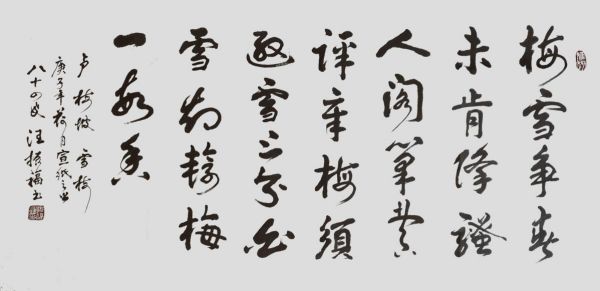 梅雪争春
未肯降骚
人阁笔费
评章梅须
逊雪三分白
雪却输梅
一段香
卢梅坡 雪梅
庚子年荷月宣纸之乡
八十四岁 汪振福书